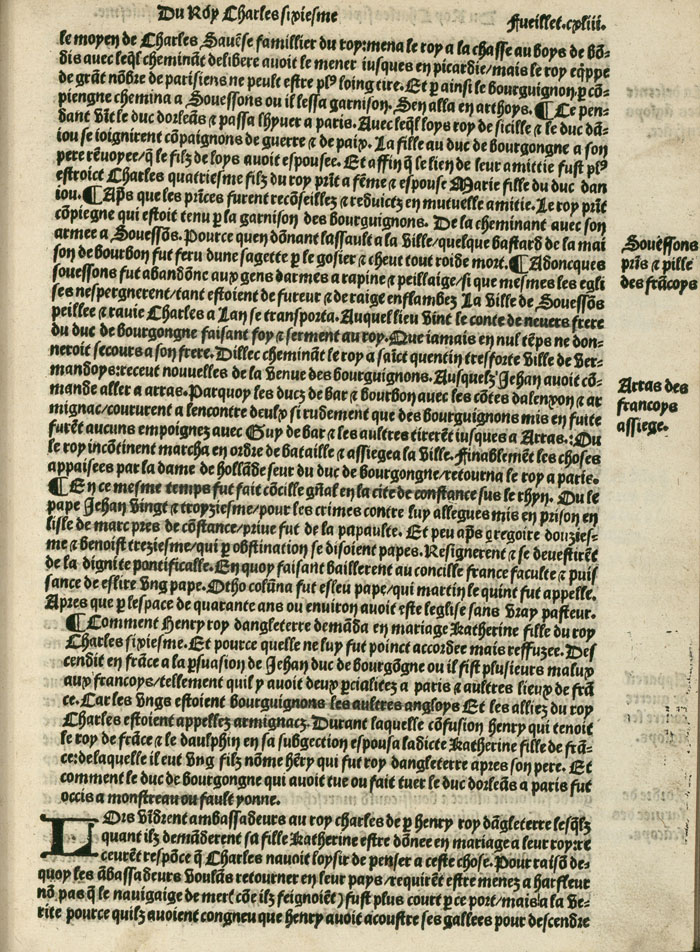 Du Roy Charles sixiesme
Fueillet.cxliii.
le moyen de Charles Savẽse famillier du roy:mena le roy a la chasse au boys de bõ-
dis avec leq̃l cheminãt delibere avoit le mener iusques en picardie/mais le roy eq̃ppe
de grãt nõbre de parisiens ne peult estre pl⁹ loing tire. Et p ainsi le bourguignon.p cõ-
piengne chemina a Souessons ou il lessa garnison. Sen alla en arthoys. ¶Ce pen-
dant vĩt le duc dorleãs ⁊ passa lhyuer a paris. Avec leq̃l loys roy de sicille ⁊ le duc dã-
iou se ioignirent cõpaignons de guerre ⁊ de paix. La fille au duc de bourgongne a son
pere rẽvoyee/q̃ le filz de loys avoit espousee. Et affin q̃ le lien de leur amittie fust pl⁹
estroict Charles quatriesme filz du roy prĩt a fẽme ⁊ espouse Marie fille du duc dan
iou. ¶Aps̃ que les prĩces furent recõseillez ⁊ reduictz en mutuelle amitie. Le roy prĩt
cõpiegne qui estoit tenu p la garnison des bourguignons. De la cheminant avec son
armee a Souessõs. Pource quen dõnant lassault a la ville/quelque bastard de la mai
son de bourbon fut feru dune sagette p le gosier ⁊ cheut tout roide mort. ¶Adoncques
souessons fut abandõne aux gens darmes a rapine ⁊ peillaige/si que mesmes les egli
ses nespergnerent/tant estoient de fureur ⁊ de raige enflambez La ville de Souessõs
peillee ⁊ ravie Charles a Lan se transporta. Auquel lieu vĩt le conte de nevers frere
du duc de bourgongne faisant foy ⁊ serment au roy. Que iamais en nul tẽps ne don-
neroit secours a son frere. Dillec cheminãt le roy a saĩct quentin tresforte ville de ver-
mandoys:receut nouuelles de la venue des bourguignons. Ausquelz Jehan avoit cõ-
mande aller a arras. Parquoy les ducz de bar ⁊ bourbon avec les cõtes dalenxon ⁊ ar
mignac/coururent a lencontre deulx si rudement que des bourguignons mis en fuite
furẽt aucuns empoignez avec Guy de bar ⁊ les aultres tirerẽt iusques a Arras.:Ou
le roy incõtinent marcha en ordre de bataille ⁊ assiegea la ville. Finablemẽt les choses
appaisees par la dame de hollãde seur du duc de bourgongne/retourna le roy a paris.
¶En ce mesme temps fut fait cõcille gñal en la cite de constance sus le rhyn. Ou le
pape Jehan vingt ⁊ troyziesme/pour les crimes contre luy allegues mis en prison en
lisle de marc pres de cõstance/prive fut de la papaulte. Et peu aps̃ gregoire douzies-
me ⁊ benoist treziesme/qui p obstination se disoient papes. Resignerent ⁊ se deuestirẽt
de la dignite pontificalle. En quoy faisant baillerent au concille france faculte ⁊ puis
sance de eslire vng pape. Otho colũna fut esleu pape/qui martin le quint fut appelle.
Apres que p lespace de quarante ans ou environ avoit este leglise sans vray pasteur.
¶Comment Henry roy dangleterre demãda en mariage Katherine fille du roy
Charles sixiesme. Et pource quelle ne luy fut poinct accordee mais reffuzee. Des
cendit en frãce a la psuasion de Jehan duc de bourgõgne ou il fist plusieurs malux
aux francoys/tellement quil y avoit deux pcialitez a paris ⁊ aultres lieux de frã
ce. Car les vngs estoient bourguignons les aultres angloys Et les alliez du roy
Charles estoient appellez armignacz. Durant laquelle cõfusion henry qui tenoit
le roy de frãce ⁊ le daulphin en sa subgection espousa ladicte Katherine fille de frã-
ce:delaquelle il eut vng filz nõme hẽry qui fut roy dangleterre apres son pere. Et
comment le duc de bourgongne qui avoit tue ou fait tuer le duc dorleãs a paris fut
occis a monstreau ou fault yonne.
LOrs vĩdrent ambassadeurs au roy charles de p henry roy dãgleterre lesq̃lz
quant ilz demãderent sa fille Katherine estre dõnee en mariage a leur roy:re
ceurẽt respõce q̃ Charles navoit loysir de penser a ceste chose. Pour raisõ de-
quoy les ãbassadeurs voulãs retourner en leur pays/requirẽt estre menez a harfleur
nõ pas q̃ le navigaige de mer(cõe ilz feignoiẽt) fust plus court p ce port/mais a la ve-
rite pource quilz avoient congneu que henry avoit acoustre ses gallees pour descendre
Souẽssons
prĩs ⁊ pille
des frãcoys
Arras des
francoys
assiege.